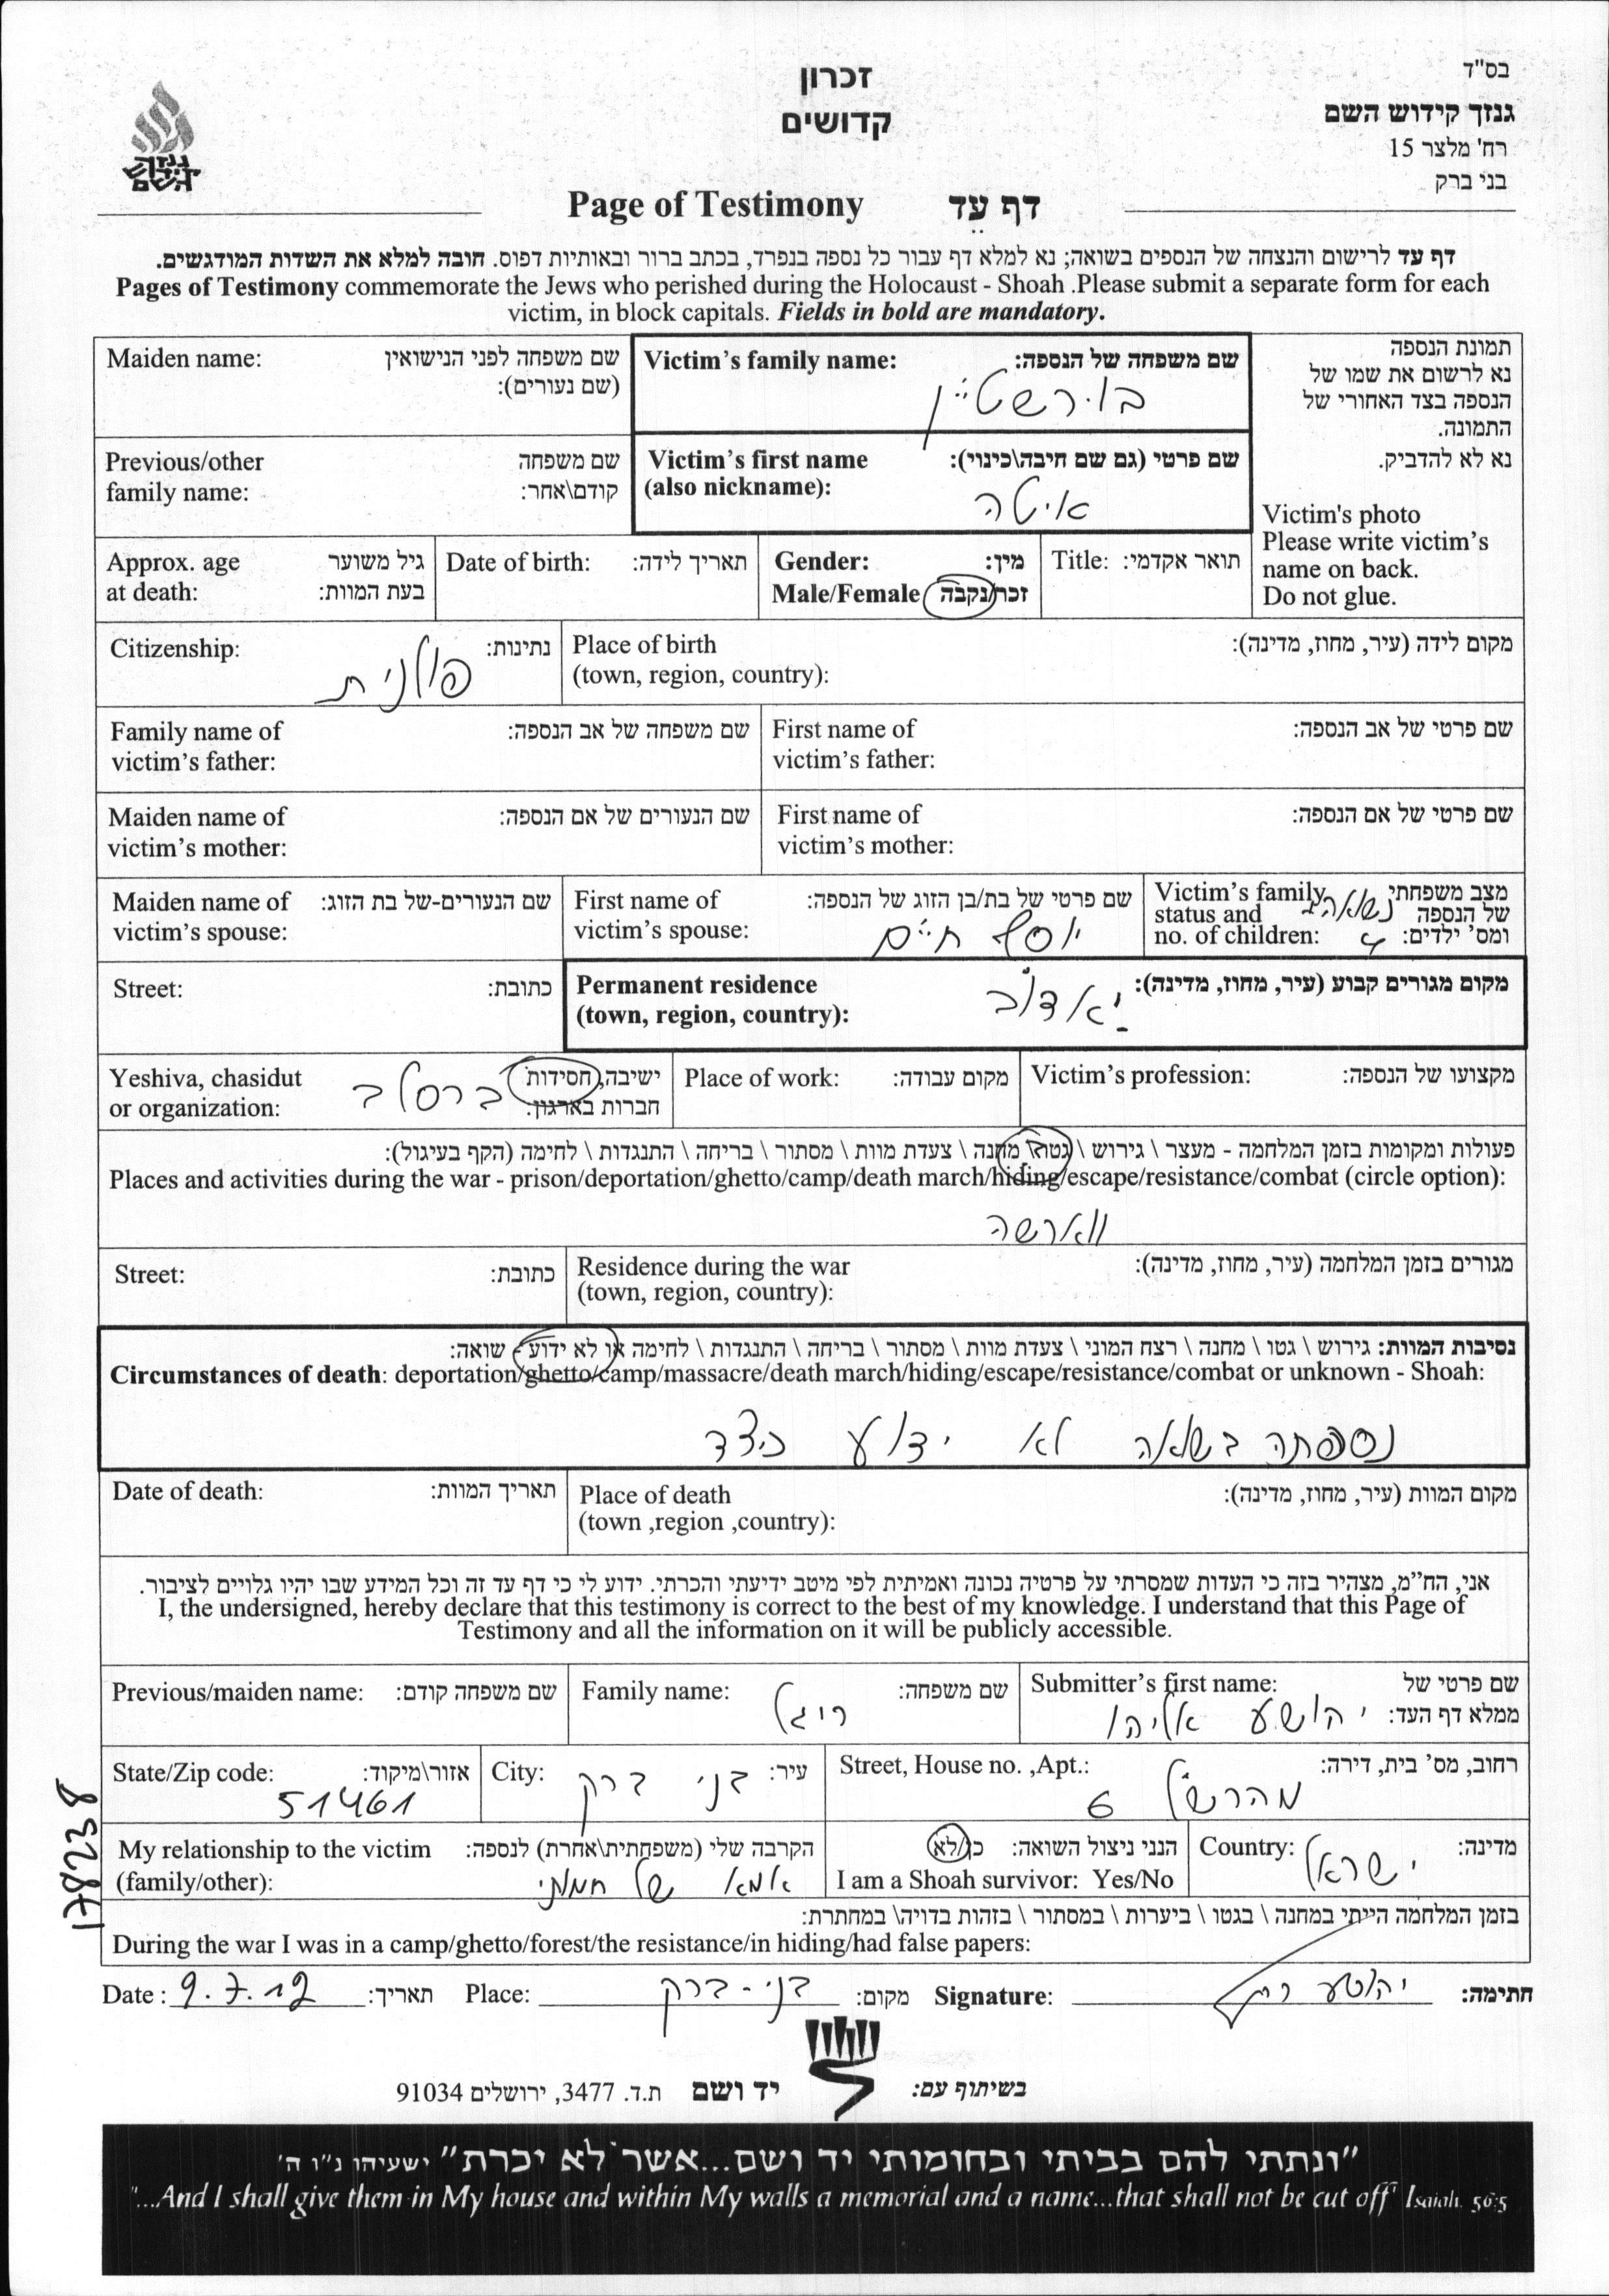 בס"ד
גנזך קידוש השם
רח' מלצר 15
בני ברק
זכרון
קדושים
גנזך קידוש השם
Page of Testimony דף עֵד
דף עד לרישום והנצחה של הנספים בשואה; נא למלא דף עבור כל נספה בנפרד, בכתב ברור ובאותיות דפוס. חובה למלא את השדות המודגשים.
Pages of Testimony commemorate the Jews who perished during the Holocaust - Shoah .Please submit a separate form for each
victim, in block capitals. Fields in bold are mandatory.
תמונת הנספה
נא לרשום את שמו של
הנספה בצד האחורי של
התמונה.
נא לא להדביק.
Victim's photo
Please write victim's
name on back.
Do not glue.
Victim's family name: שם משפחה של הנספה:
בורשטיין
Maiden name: שם משפחה לפני הנישואין
(שם נעורים):
Victim's first name שם פרטי (גם שם חיבה\כינוי):
(also nickname):
איטה
Previous/other שם משפחה
family name: קודם\אחר:
Title: תואר אקדמי:
Gender: מין:
Male/Female זכר/נקבה
Date of birth: תאריך לידה:
Approx. age גיל משוער
at death: בעת המוות:
Place of birth מקום לידה (עיר, מחוז, מדינה):
(town, region, country):
Citizenship: נתינות:
פולנית
First name of שם פרטי של אב הנספה:
victim's father:
Family name of שם משפחה של אב הנספה:
victim's father:
First name of שם פרטי של אם הנספה:
victim's mother:
Maiden name of שם הנעורים של אם הנספה:
victim's mother:
Victim's family מצב משפחתי
status and של הנספה נשואה
no. of children: ומס' ילדים:
First name of שם פרטי של בת/בן הזוג של הנספה:
victim's spouse: יוסף חיים
Maiden name of שם הנעורים-של בת הזוג:
victim's spouse:
Permanent residence מקום מגורים קבוע (עיר, מחוז, מדינה):
(town, region, country): יאדוב
Street: כתובת:
Victim's profession: מקצועו של הנספה:
Place of work: מקום עבודה:
Yeshiva, chasidut ישיבה, חסידות
or organization: חברות בארגון: ברסלב
פעולות ומקומות בזמן המלחמה - מעצר \ גירוש \ גטו \ מחנה \ צעדת מוות \ מסתור \ בריחה \ התנגדות \ לחימה (הקף בעיגול):
Places and activities during the war - prison/deportation/ghetto/camp/death march/hiding/escape/resistance/combat (circle option):
ווארשה
Residence during the war מגורים בזמן המלחמה (עיר, מחוז, מדינה):
(town, region, country):
Street: כתובת:
נסיבות המוות: גירוש \ גטו \ מחנה \ רצח המוני \ צעדת מוות \ מסתור \ בריחה \ התנגדות \ לחימה או לא ידוע - שואה:
Circumstances of death: deportation/ghetto/camp/massacre/death march/hiding/escape/resistance/combat or unknown - Shoah:
נספתה בשואה לא ידוע כיצד
Place of death מקום המוות (עיר, מחוז, מדינה):
(town ,region ,country):
Date of death: תאריך המוות:
אני, הח"מ, מצהיר בזה כי העדות שמסרתי על פרטיה נכונה ואמיתית לפי מיטב ידיעתי והכרתי. ידוע לי כי דף עד זה וכל המידע שבו יהיו גלויים לציבור.
I, the undersigned, hereby declare that this testimony is correct to the best of my knowledge. I understand that this Page of
Testimony and all the information on it will be publicly accessible.
Submitter's first name: שם פרטי של
ממלא דף העד: יהושע אליהו
Family name: שם משפחה:
ריגל
Previous/maiden name: שם משפחה קודם:
Street, House no. ,Apt.: רחוב, מס' בית, דירה:
מהרשל 6
City: עיר: בני ברק
State/Zip code: אזור\מיקוד:
51461
Country: מדינה:
ישראל
הנני ניצול השואה: כן/לא
I am a Shoah survivor: Yes/No
My relationship to the victim הקרבה שלי (משפחתית\אחרת) לנספה:
(family/other): אמא של חמותי
בזמן המלחמה הייתי במחנה \ בגטו \ ביערות \ במסתור \ בזהות בדויה\ במחתרת:
During the war I was in a camp/ghetto/forest/the resistance/in hiding/had false papers:
Date : 9.7.12 תאריך: Place: בני-ברק מקום: Signature: יהושע חתימה:
178238
בשיתוף עם: יד ושם ת.ד. 3477, ירושלים 91034
"ונתתי להם בביתי ובחומותי יד ושם...אשר לא יכרת" ישעיהו נ"ו ה'
"...And I shall give them in My house and within My walls a memorial and a name...that shall not be cut off" Isaiah. 56:5